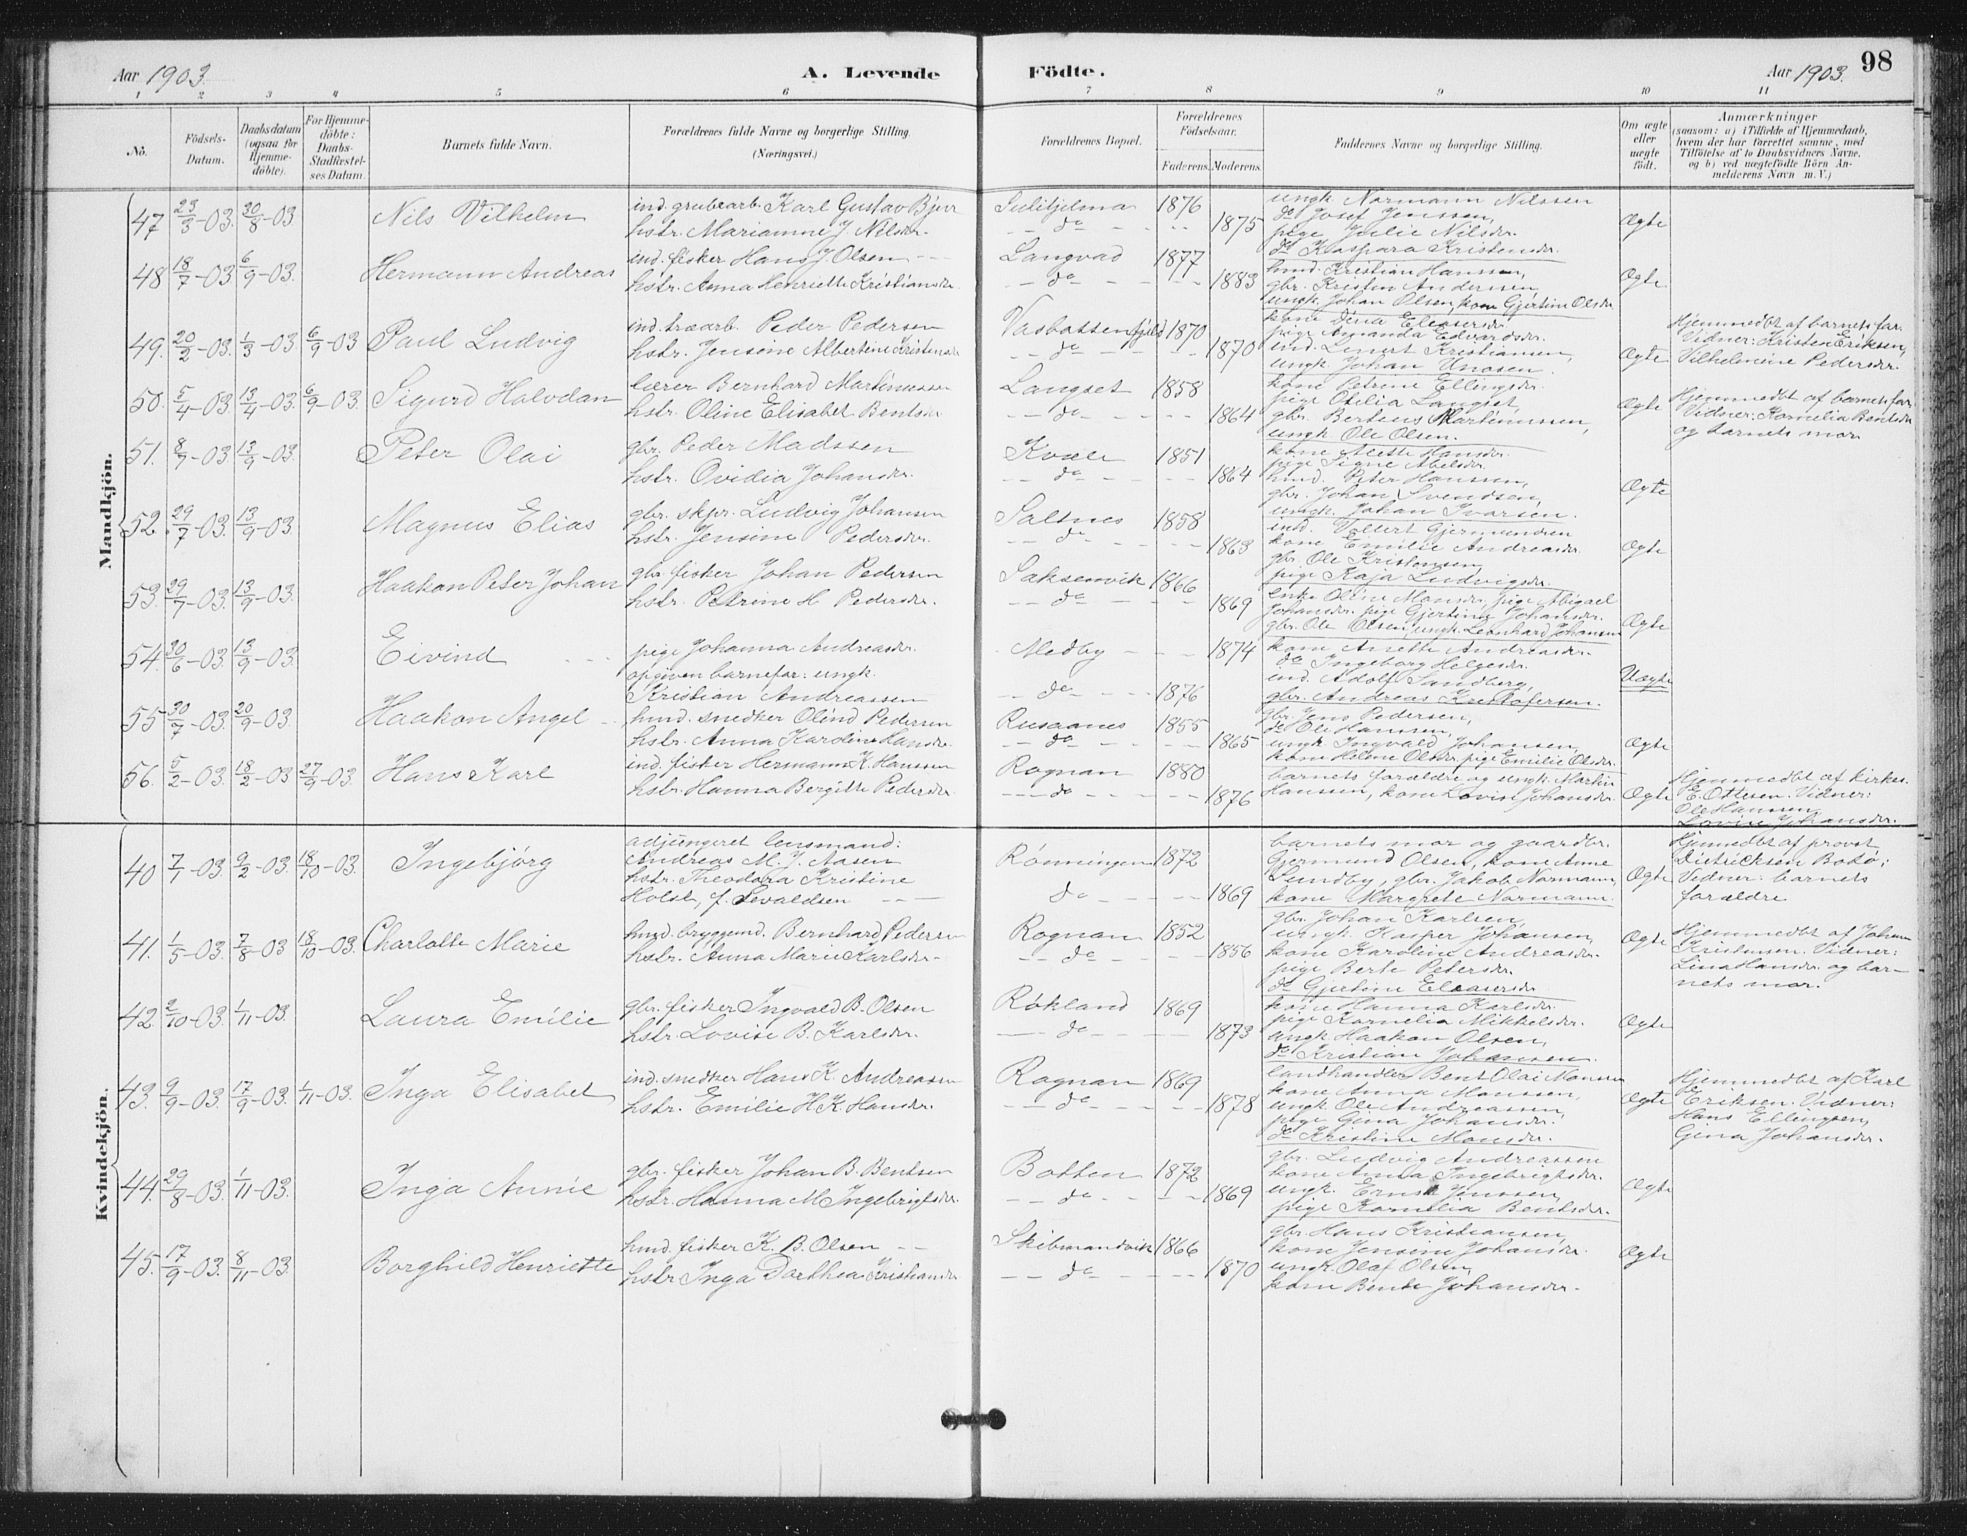 Aar 1903. A. Levende Födte. Aar 1903. 98
1 2 3 4 5 6 7 8 9 10 11
No.
Födsels-
Datum.
Daabsdatum
(ogsaa for
Hjemme-
döbte).
For Hjemme-
döbte:
Daabs-
Stadfæstel-
ses Datum.
Barnets fulde Navn.
Forældrenes fulde Navne og borgerlige Stilling.
(Næringsvei.)
Forældrenes Bopæl.
Forældrenes
Födselsaar.
Faderens. Moderens.
Faddernes Navne og borgerlige Stilling.
Om ægte
eller
uægte
født.
Anmærkninger
(saasom: a) i Tilfælde af Hjemmedaab,
hvem der har forrettet samme, med
Tilföielse af to Daabsvidners Navne,
og b) ved uægtefödte Börn An-
melderens Navn m. V.)
Mandkjön.
47 23/3-03. 30/8-03. Nils Vilhelm
ind. grubearb. Karl Gustav Bjur
hstr. Marianne J. Nilsdr.
Sulitjelma 1876
do 1875
ungk. Normann Nilssen
do Josef Jenssen,
pige Julie Nilsdr.
do Kaspara Kristensdr.
Ægte
48 18/7-03. 6/9-03. Hermann Andreas
ind. fisker Hans J. Olsen
hstr. Anna Henriette Kristiansdr.
Langvad 1877
do 1883
hmd. Kristian Hanssen,
gbr. Kristen Anderssen,
ungk. Johan Olsen, kone Gjertine Olsdr.
Ægte
49. 20/2-03. 1/3-03. 6/9-03 Paul Ludvig
ind. træarb. Peder Pedersen
hstr. Jensine Albertine Kristensdr.
Vasbottenfjeld 1870
do 1870
kone Dina Eleasersdr.
pige Amanda Edvardsdr.
ind. Lenert Kristiansen,
ungk. Johan Unosen.
Ægte
Hjemmedbt af barnets far.
Vidner: Kristen Eriksen,
Vilhelmine Pedersdr.
50. 5/4-03. 13/4-03. 6/9-03. Sigurd Halvdan
lærer Bernhard Martinussen
hstr. Oline Elisabet Bentsdr.
Langset 1858
do 1864
kone Petrine Ellingsdr.
pige Otelia Langset,
gbr. Berteus Martinussen,
ungk. Ole Olsen.
Ægte
Hjemmedbt af barnets far.
Vidner: Kornelia Bentsdr.
og barnets mor.
51. 8/7-03 13/9-03. Peter Olai
gbr. Peder Madssen
hstr. Ovidia Johansdr.
Kvæle 1851
do 1864
kone Mette Hansdr.
pige Signe Abelsdr.
hmd. Peter Hanssen,
gbr. Johan Svendsen,
ungk. Johan Ivarsen.
Ægte
52. 29/7-03. 13/9-03. Magnus Elias
gbr. skpr. Ludvig Johansen
hstr. Jensine Pedersdr.
Saltnes 1858
do 1863
ind. Volmert Gjermundsen
kone Emilie Andreasdr.
gbr. Ole Kristensen
pige Kaja Ludvigsdr.
Ægte
53. 29/7-03. 13/9-03. Haakon Peter Johan
gbr. fisker Johan Pedersen
hstr. Petrine H. Pedersdr.
Saksenvik 1866
do 1869
enke Oline Monsdr. pige Abigael
Johansdr. pige Gjertine Johansdr.
gbr. Ole Olsen, ungk. Leonhard Johansen
Ægte
54. 30/6-03. 13/9-03. Eivind
pige Johanna Andreasdr.
opgiven barnefar: ungk.
Kristian Andreassen
Medby 1874
do 1876
kone Anette Andreasdr.
do Ingeborg Helgesdr.
ind. Adolf Sandberg,
gbr. Andreas Kristofersen.
Uægte
55 30/7-03. 20/9-03. Haakon Angel
hmd. snedker Olind Pedersen
hstr. Anna Karoline Hansdr.
Rusaanes 1855
do 1865
gbr. Jens Pedersen,
do Ole Hanssen,
ungk. Ingvald Johansen,
kone Helene Olsdr. pige Emilie Olsdr.
Ægte
56. 5/2-03. 18/2-03 27/9-03. Hans Karl
ind. fisker Hermann K. Hanssen
hstr. Hanna Bergitte Pedersdr.
Rognan 1880
do 1876
barnets forældre og ungk. Martin
Hanssen, kone Lovise Johansdr.
Ægte
Hjemmedbt af kirkes.
E. Ottesen. Vidner:
Ole Hanssen,
Lovise Johansdr.
Kvindekjön.
40 7/1-03. 9/2-03. 18/10-03. Ingebjörg
adjungeret lensmand:
Andreas M. J. Aasen
hstr. Theodora Kristine
Holst, f. Sevaldsen
Rønningen 1872
do 1869
barnets mor og gaardbr.
Gjermund Olsen, kone Anne
Sundby, gbr. Jakob Normann,
kone Margrete Normann.
Ægte
Hjemmedbt af provst
Dietricksen Bodø;
Vidner: barnets
forældre
41. 1/5-03. 7/8-03 18/10-03. Charlotte Marie
hmd. bryggemd. Bernhard Pedersen
hstr. Anna Marie Karlsdr.
Rognan 1852
do 1856
gbr. Johan Karlsen,
ungk. Kasper Johansen,
kone Karoline Andreasdr.
pige Berte Petersdr.
do Gjertine Eleasersdr.
Ægte
Hjemmedbt af Johan
Kristensen. Vidner:
Lina Hansdr. og bar-
nets mor.
42. 9/10-03. 1/11-03. Laura Emilie
gbr. fisker Ingvald B. Olsen
hstr. Lovise B. Karlsdr.
Røkland 1869
do 1873
kone Hanna Karlsdr.
pige Kornelia Mikkelsdr.
ungk. Haakon Olsen,
do Kristian Johansen.
Ægte
43. 9/9-03. 17/9-03. 1/11-03. Inga Elisabet
ind. snedker Hans K. Andreassen
hstr. Emilie H. K. Hansdr.
Rognan 1869
do 1878
landhandler Bent Olai Monsen
kone Anna Monssen,
ungk. Ole Andreassen,
pige Gina Johansdr.
do Kristine Monsdr.
Ægte
Hjemmedbt af Karl
Eriksen. Vidner:
Hans Ellingsen,
Gina Johansdr.
44. 29/8-03. 1/11-03. Inga Annie
gbr. fisker Johan B. Bentsen
hstr. Hanna M. Ingebrigtsdr.
Botten 1872
do 1869
gbr. Ludvig Andreassen
kone Anna Ingebrigtsdr.
ungk. Ernst Jenssen,
pige Kornelia Bentsdr.
Ægte
45. 17/9-03. 8/11-03. Borghild Henriette
hmd. fisker K. B. Olsen
hstr. Inga Dorthea Kristiansdr.
Skibmandvik 1866
do 1870
gbr. Hans Kristiansen,
kone Jensine Johansdr.
ungk. Olaf Olsen,
kone Bente Johansdr.
Ægte